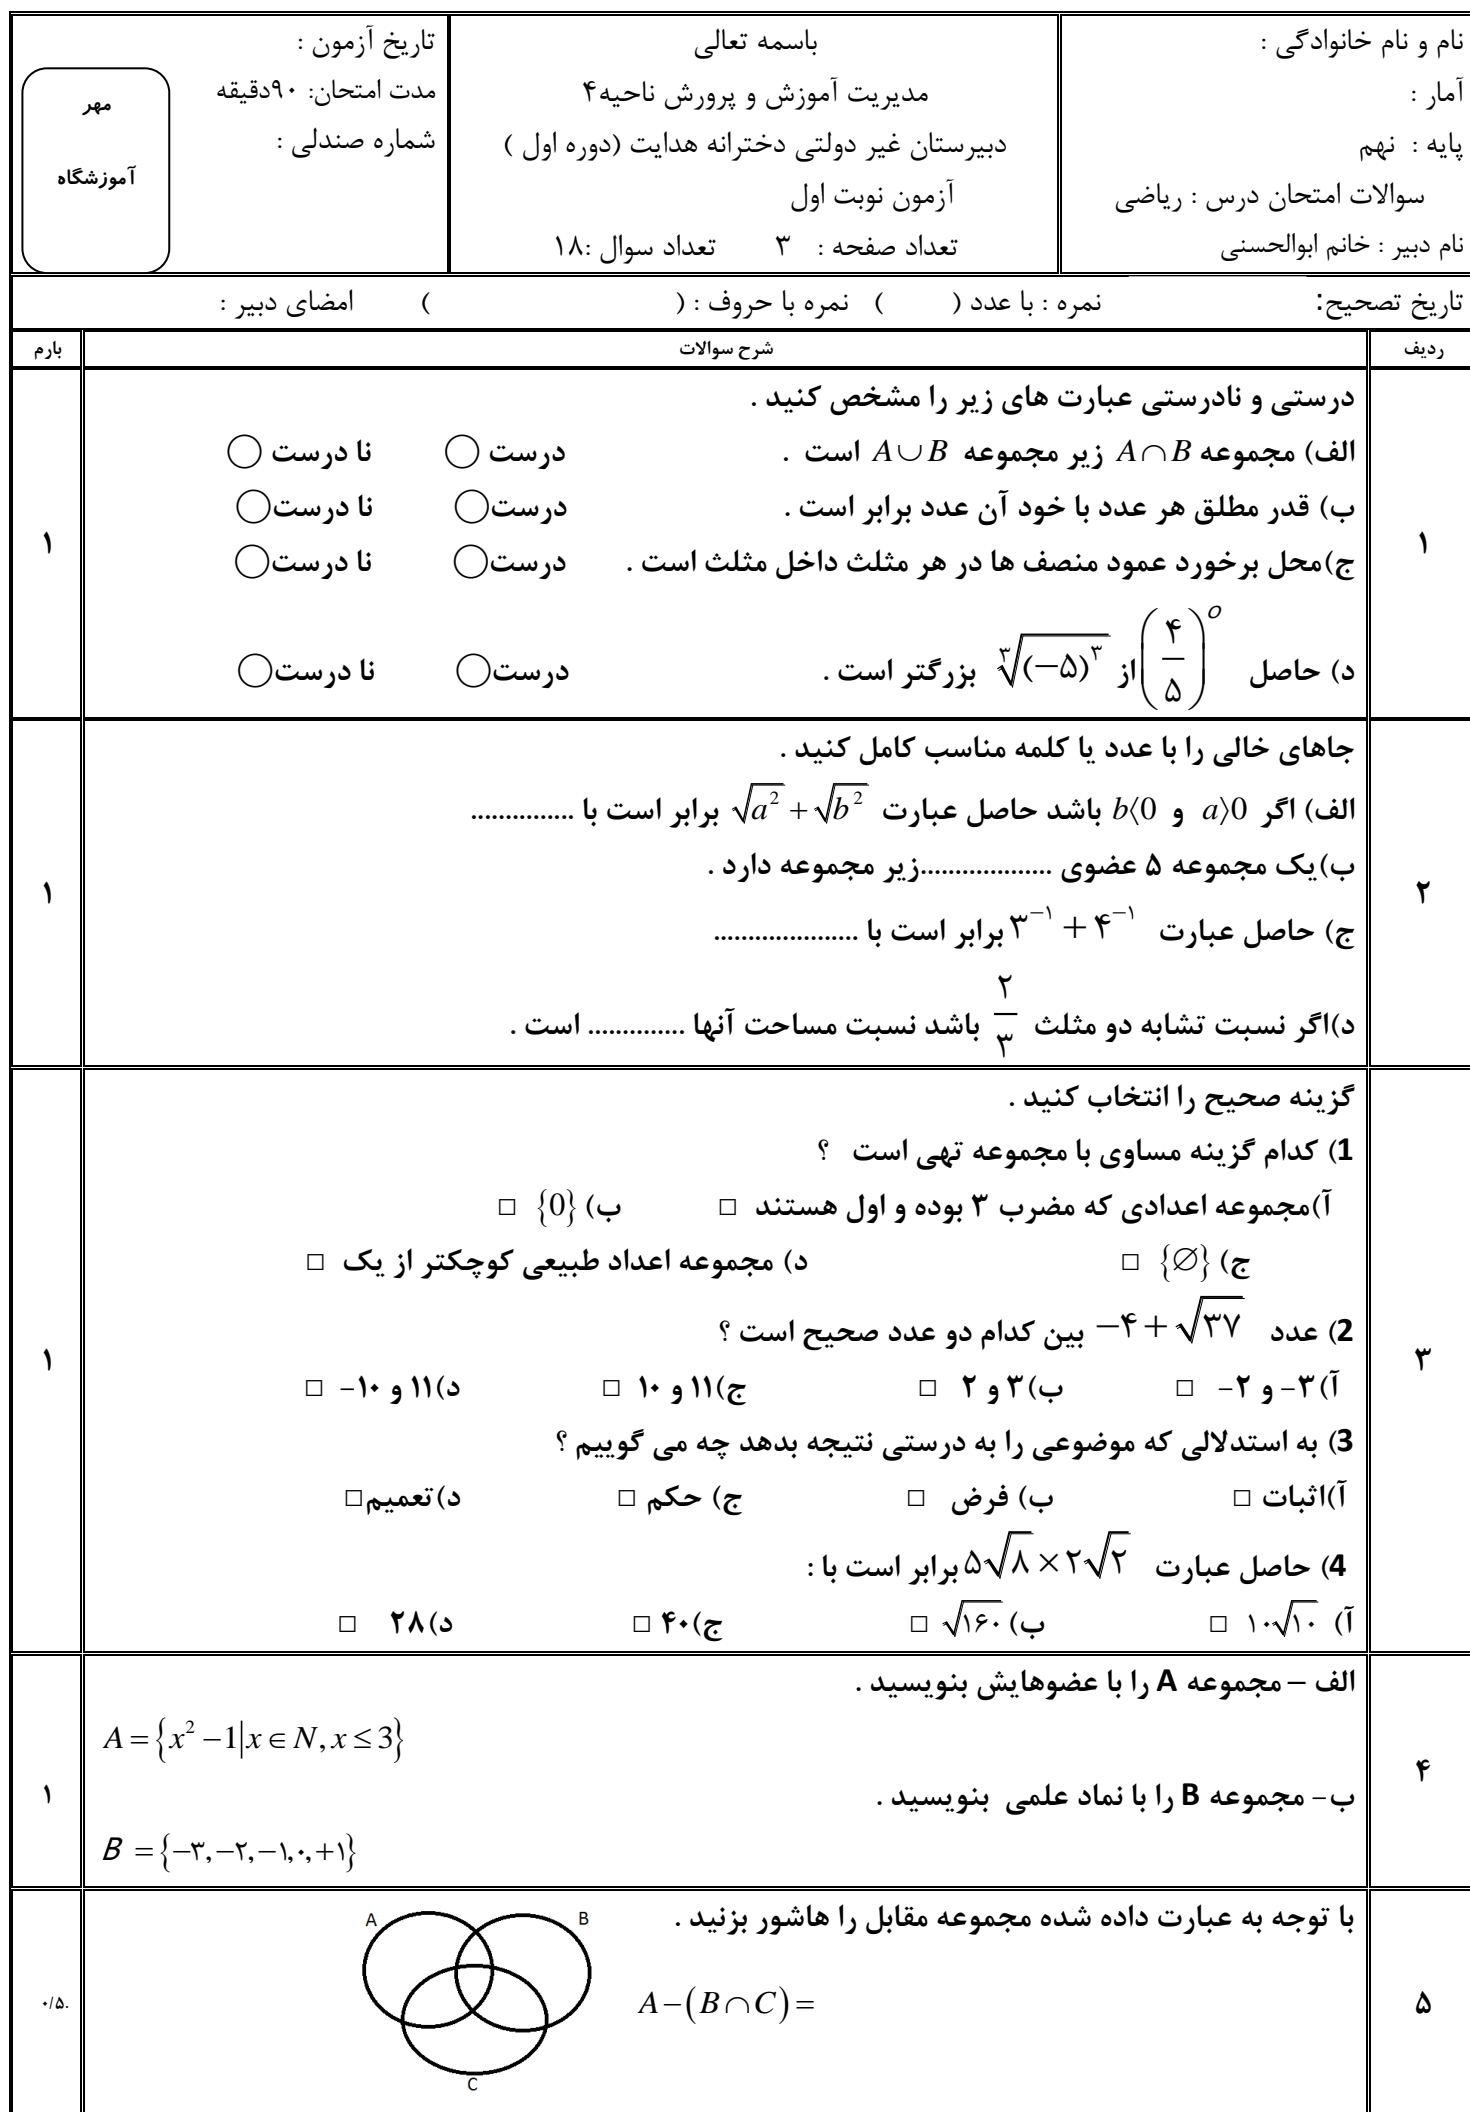 نام و نام خانوادگی :
آمار :
پایه : نهم
سوالات امتحان درس : ریاضی
نام دبیر : خانم ابوالحسنی
باسمه تعالی
مدیریت آموزش و پرورش ناحیه۴
دبیرستان غیر دولتی دخترانه هدایت (دوره اول )
آزمون نوبت اول
تعداد صفحه : ۳ تعداد سوال :۱۸
تاریخ آزمون :
مدت امتحان: ۹۰دقیقه
شماره صندلی :
مهر
آموزشگاه
تاریخ تصحیح: نمره : با عدد ( ) نمره با حروف : ( ) امضای دبیر :
ردیف شرح سوالات بارم
۱ ۱
درستی و نادرستی عبارت های زیر را مشخص کنید .
الف) مجموعه A∩B زیر مجموعه A∪B است . درست ◯ نا درست ◯
ب) قدر مطلق هر عدد با خود آن عدد برابر است . درست◯ نا درست◯
ج)محل برخورد عمود منصف ها در هر مثلث داخل مثلث است . درست◯ نا درست◯
د) حاصل (۴/۵)^o از ∛(−۵)^۳ بزرگتر است . درست◯ نا درست◯
۲ ۱
جاهای خالی را با عدد یا کلمه مناسب کامل کنید .
الف) اگر a⟩0 و b⟨0 باشد حاصل عبارت √a² + √b² برابر است با ...............
ب)یک مجموعه ۵ عضوی ...................زیر مجموعه دارد .
ج) حاصل عبارت ۳^−۱ + ۴^−۱ برابر است با .....................
د)اگر نسبت تشابه دو مثلث ۲/۳ باشد نسبت مساحت آنها .............. است .
۳ ۱
گزینه صحیح را انتخاب کنید .
1) کدام گزینه مساوی با مجموعه تهی است ؟
آ)مجموعه اعدادی که مضرب ۳ بوده و اول هستند □ ب) {0} □
ج) {∅} □ د) مجموعه اعداد طبیعی کوچکتر از یک □
2) عدد −۴+√۳۷ بین کدام دو عدد صحیح است ؟
آ)۳- و ۲- □ ب)۳ و ۲ □ ج)۱۱ و ۱۰ □ د)۱۱ و ۱۰- □
3) به استدلالی که موضوعی را به درستی نتیجه بدهد چه می گوییم ؟
آ)اثبات □ ب) فرض □ ج) حکم □ د)تعمیم□
4) حاصل عبارت ۵√۸×۲√۲ برابر است با :
آ) ۱۰√۱۰ □ ب) √۱۶۰ □ ج)۴۰ □ د)۲۸ □
۴ ۱
الف – مجموعه A را با عضوهایش بنویسید .
A={x²−1|x∈N,x≤3}
ب- مجموعه B را با نماد علمی بنویسید .
B ={−۳,−۲,−۱,۰,+۱}
۵ ۰/۵.
با توجه به عبارت داده شده مجموعه مقابل را هاشور بزنید .
A−(B∩C)=
A B
C